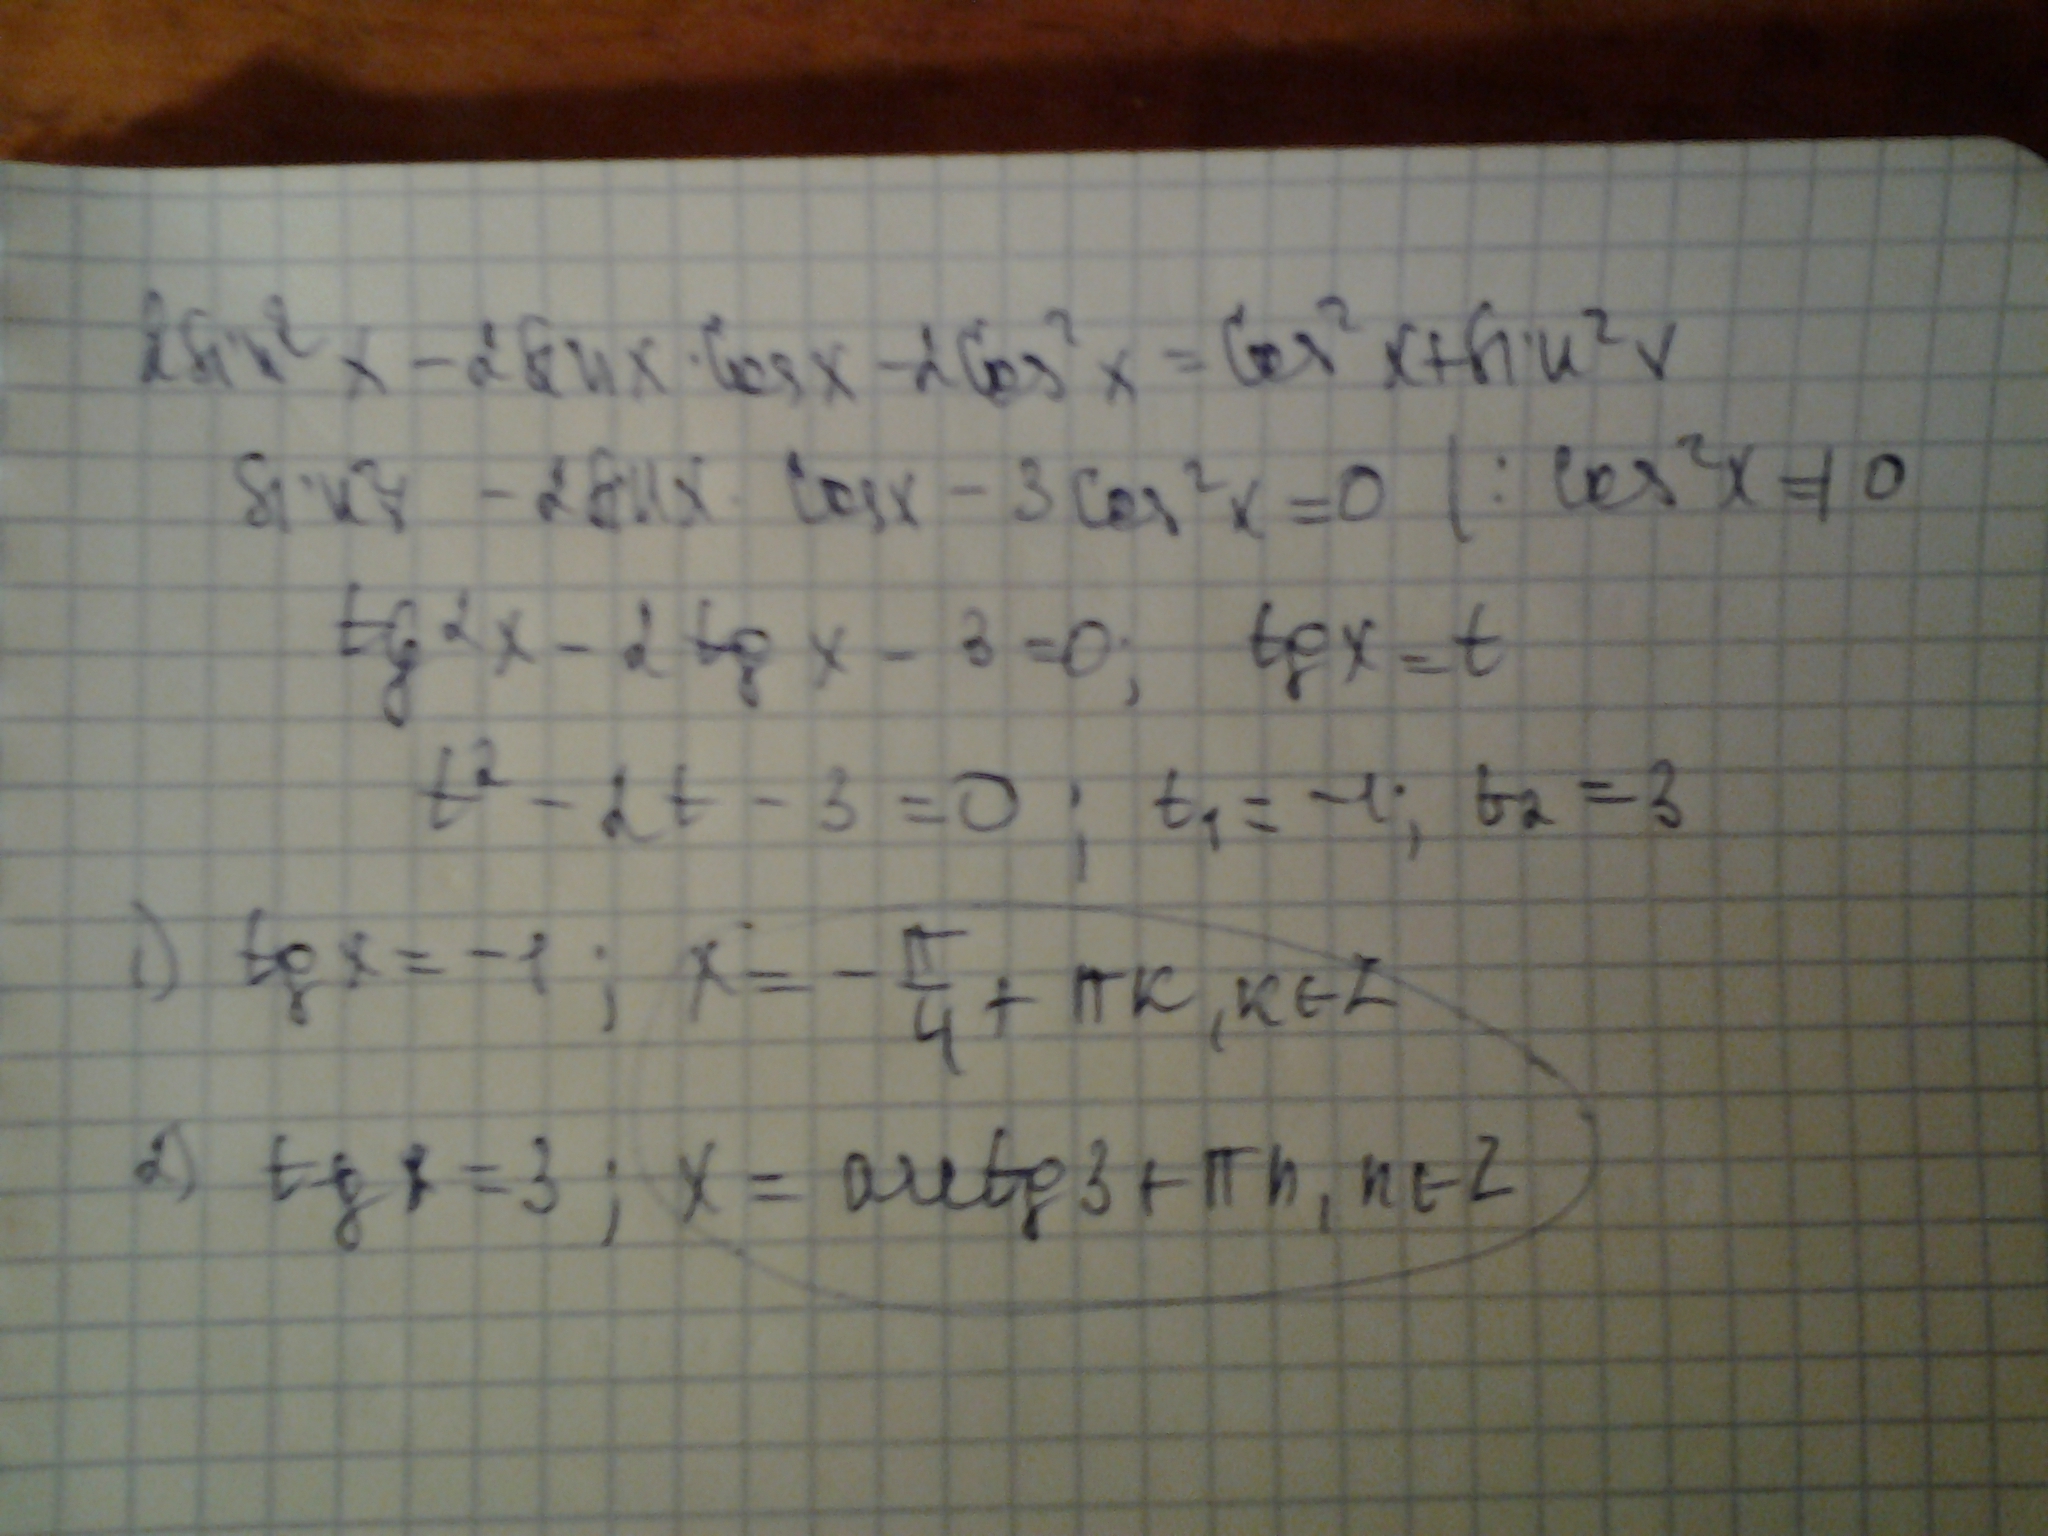 2sin²x - 2sinx·cosx - 2cos²x = cos²x + sin²x
sin²x - 2sinx·cosx - 3cos²x = 0 |: cos²x ≠ 0
tg²x - 2tgx - 3 = 0; tgx = t
t² - 2t - 3 = 0; t₁ = -1; t₂ = 3
1) tgx = -1; x = -π/4 + πk, k∈Z
2) tgx = 3; x = arctg3 + πn, n∈Z